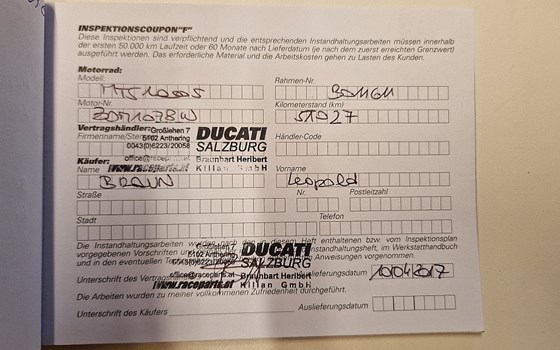 INSPEKTIONSCOUPON"F"
Diese Inspektionen sind verpflichtend und die entsprechenden Instandhaltungsarbeiten müssen innerhalb
der ersten 50.000 km Laufzeit oder 60 Monate nach Lieferdatum (je nach dem zuerst erreichten Grenzwert)
ausgeführt werden. Das erforderliche Material und die Arbeitskosten gehen zu Lasten des Kunden.
Motorrad:
Modell: Rahmen-Nr.
MTS1000S
Motor-Nr. Kilometerstand (km)
51027
Vertragshändler: Großlehen 7 DUCATI
5102 Anthering SALZBURG Händler-Code
0043(0)6223/20058
Käufer: office@raceparts.at Braunhart Heribert
Name www.raceparts.at Kilian GmbH Vorname
BRAUN Leopold
Straße Nr. Postleitzahl
Stadt Telefon
Die Instandhaltungsarbeiten wurden nach den in diesem Heft enthaltenen bzw. vom Inspektionsplan
vorgegebenen Vorschriften
und in den eventuellen Anweisungen vorgenommen.
Großlehen 7 DUCATI
5102 Anthering SALZBURG
office@raceparts.at Braunhart Heribert
www.raceparts.at Kilian GmbH
Unterschrift des Auslieferungsdatum 10042017
Die Arbeiten wurden zu meiner vollkommenen Zufriedenheit durchgeführt.
Unterschrift des Käufers Auslieferungsdatum